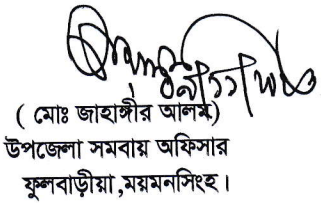 ( মোঃ জাহাঙ্গীর আলম)
উপজেলা সমবায় অফিসার
ফুলবাড়ীয়া,ময়মনসিংহ।